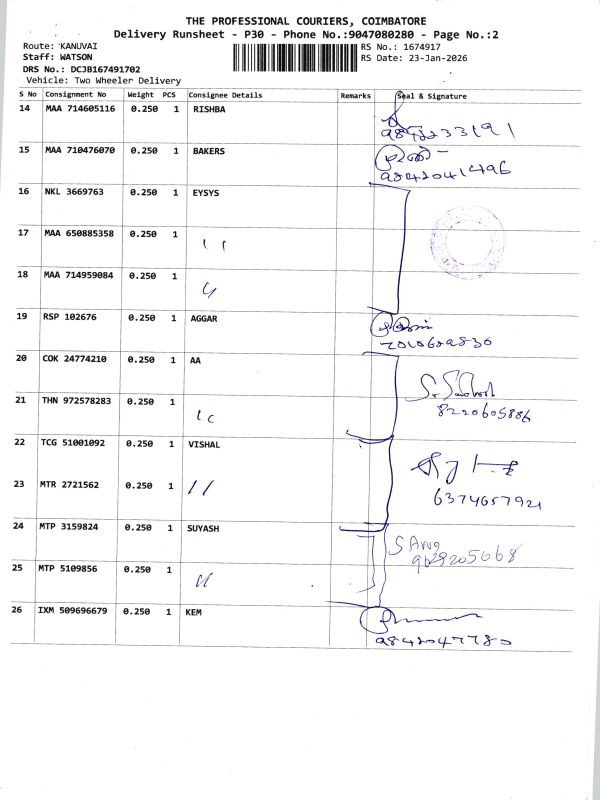 THE PROFESSIONAL COURIERS, COIMBATORE
Delivery Runsheet - P30 - Phone No.:9047080280 - Page No.:2
Route: KANUVAI
RS No.: 1674917
Staff: WATSON
RS Date: 23-Jan-2026
DRS No.: DCJB167491702
Vehicle: Two Wheeler Delivery
S No Consignment No Weight PCS Consignee Details Remarks Seal & Signature
14 MAA 714605116 0.250 1 RISHBA
15 MAA 710476070 0.250 1 BAKERS
9842041496
16 NKL 3669763 0.250 1 EYSYS
17 MAA 650885358 0.250 1 ''
18 MAA 714959084 0.250 1 ''
19 RSP 102676 0.250 1 AGGAR
20 COK 24774210 0.250 1 AA
21 THN 972578283 0.250 1 ''
8220605886
22 TCG 51001092 0.250 1 VISHAL
23 MTR 2721562 0.250 1 ''
6374657921
24 MTP 3159824 0.250 1 SUYASH
25 MTP 5109856 0.250 1 ''
26 IXM 509696679 0.250 1 KEM
9842047780